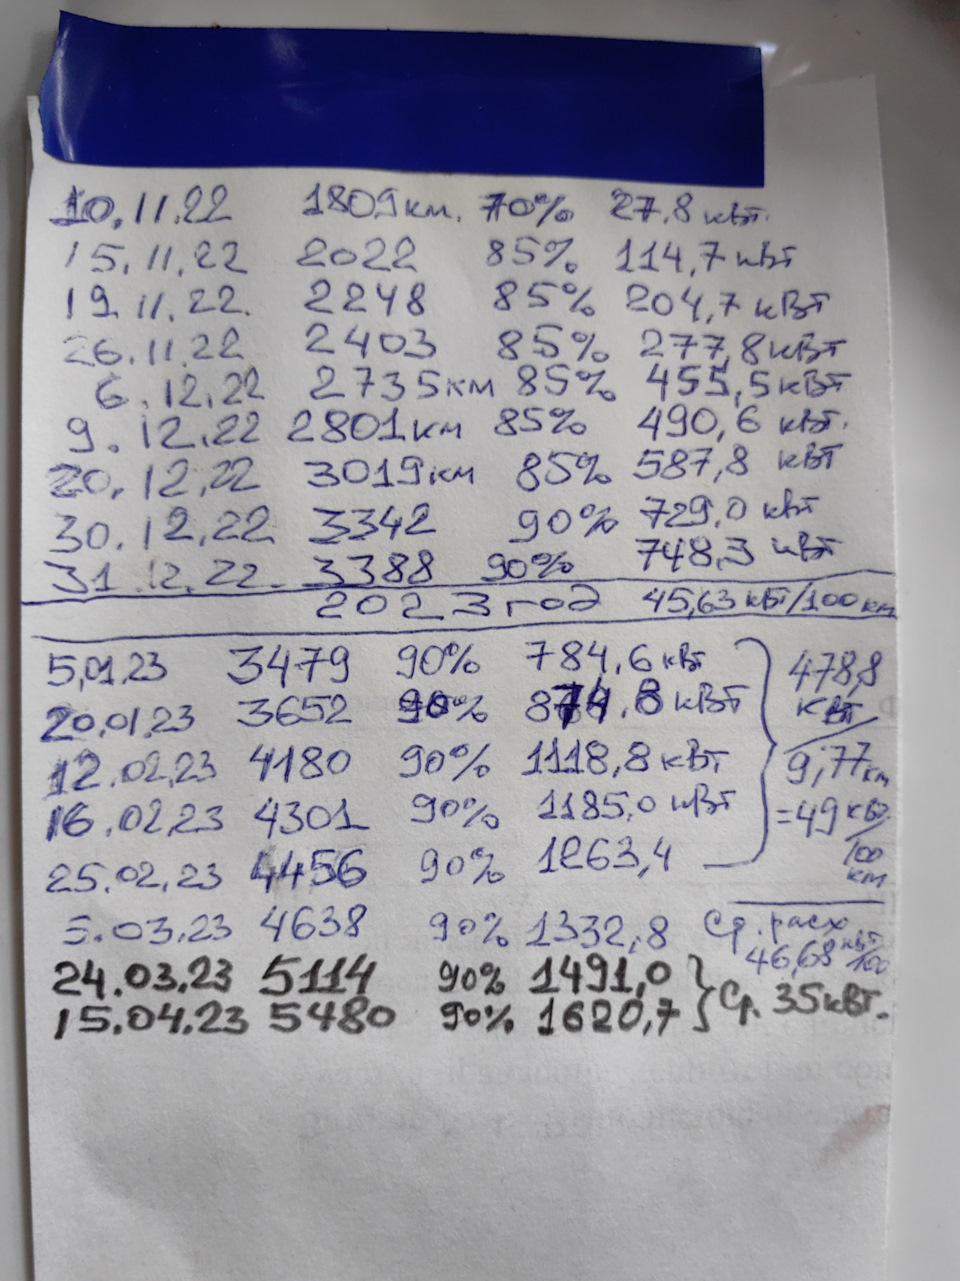 10.11.22 1809км. 70% 27,8 кВт.
15.11.22 2022 85% 114,7 кВт
19.11.22. 2248 85% 204,7 кВт
26.11.22 2403 85% 277,8 кВт
6.12.22 2735км 85% 455,5 кВт
9.12.22 2801км 85% 490,6 кВт.
20.12.22 3019км 85% 587,8 кВт
30.12.22 3342 90% 729,0 кВт
31.12.22. 3388 90% 748,3 кВт
2023 год 45,63 кВт/100 км
5,01.23 3479 90% 784,6 кВт
20.01.23 3652 90% 874,8 кВт
12.02.23 4180 90% 1118,8 кВт
16.02.23 4301 90% 1185,0 кВт
25.02.23 4456 90% 1263,4
478,8
кВт/
9,77 км
=49 кВт/
100
км
5.03.23 4638 90% 1332,8 Ср. расх
46,68 кВт/100
24.03.23 5114 90% 1491,0
15.04.23 5480 90% 1620,7
Ср. 35кВт.